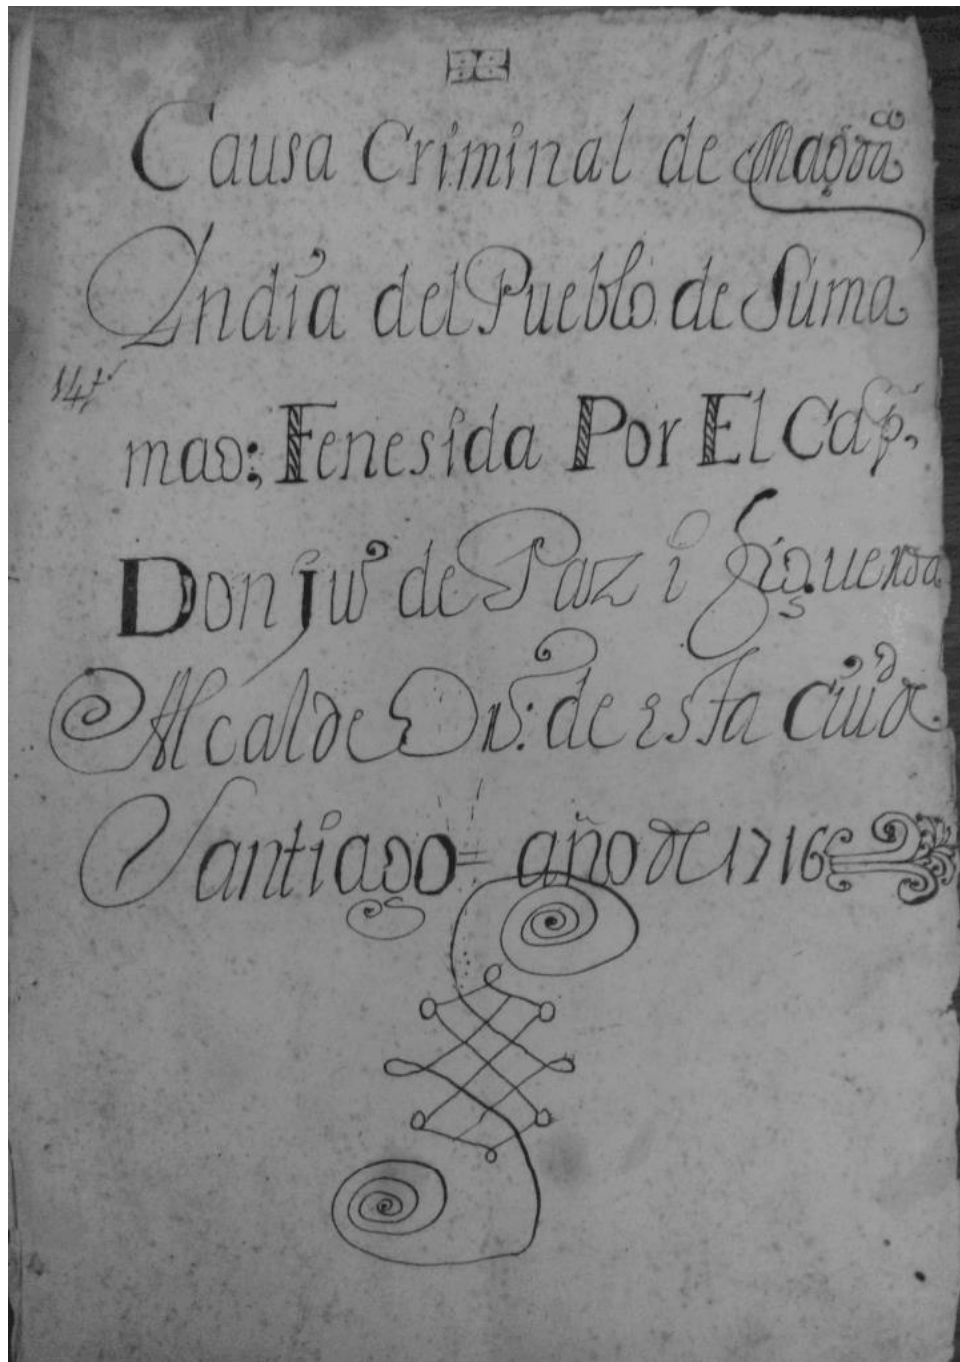 Causa Criminal de Magda
Yndia del Pueblo de Suma
mao; Fenesida Por El Cap.
Don Ju⁰ de Paz i Figueroa
Alcalde Or⁰: de esta Ciud
Santiago = año de 1716